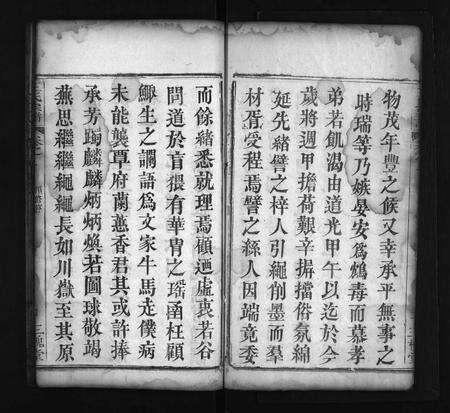 物茂年豐之候又幸承平無事之
時瑞等乃嫉晏安為鴆毒而慕孝
弟若飢渴由道光甲午以迄於今
歲將週甲擔荷艱辛摒擋俗氛綿
延先緒譬之梓人引繩削墨而羣
材胥受程焉譬之絲人因端竟委
而餘緒悉就理焉顧迺虛衷若谷
問道於盲猥有華冑之瑤函枉顧
鯫生之謭語爲文家牛馬走僕病
未能襲蕈府蘭蕙香君其或許捧
承芳躅麟麟炳炳煥若圖球敬竭
蕪思繼繼繩繩長如川嶽至其原
三槐堂